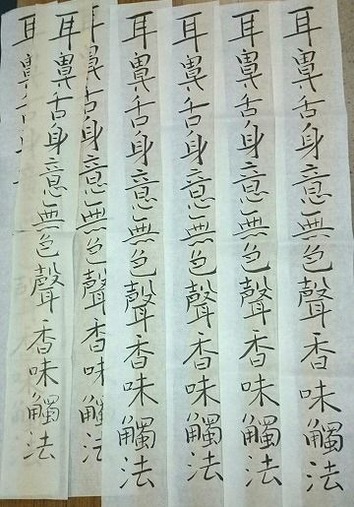 耳鼻舌身意無色聲香味觸法
耳鼻舌身意無色聲香味觸法
耳鼻舌身意無色聲香味觸法
耳鼻舌身意無色聲香味觸法
耳鼻舌身意無色聲香味觸法
耳鼻舌身意無色聲香味觸法
耳鼻舌